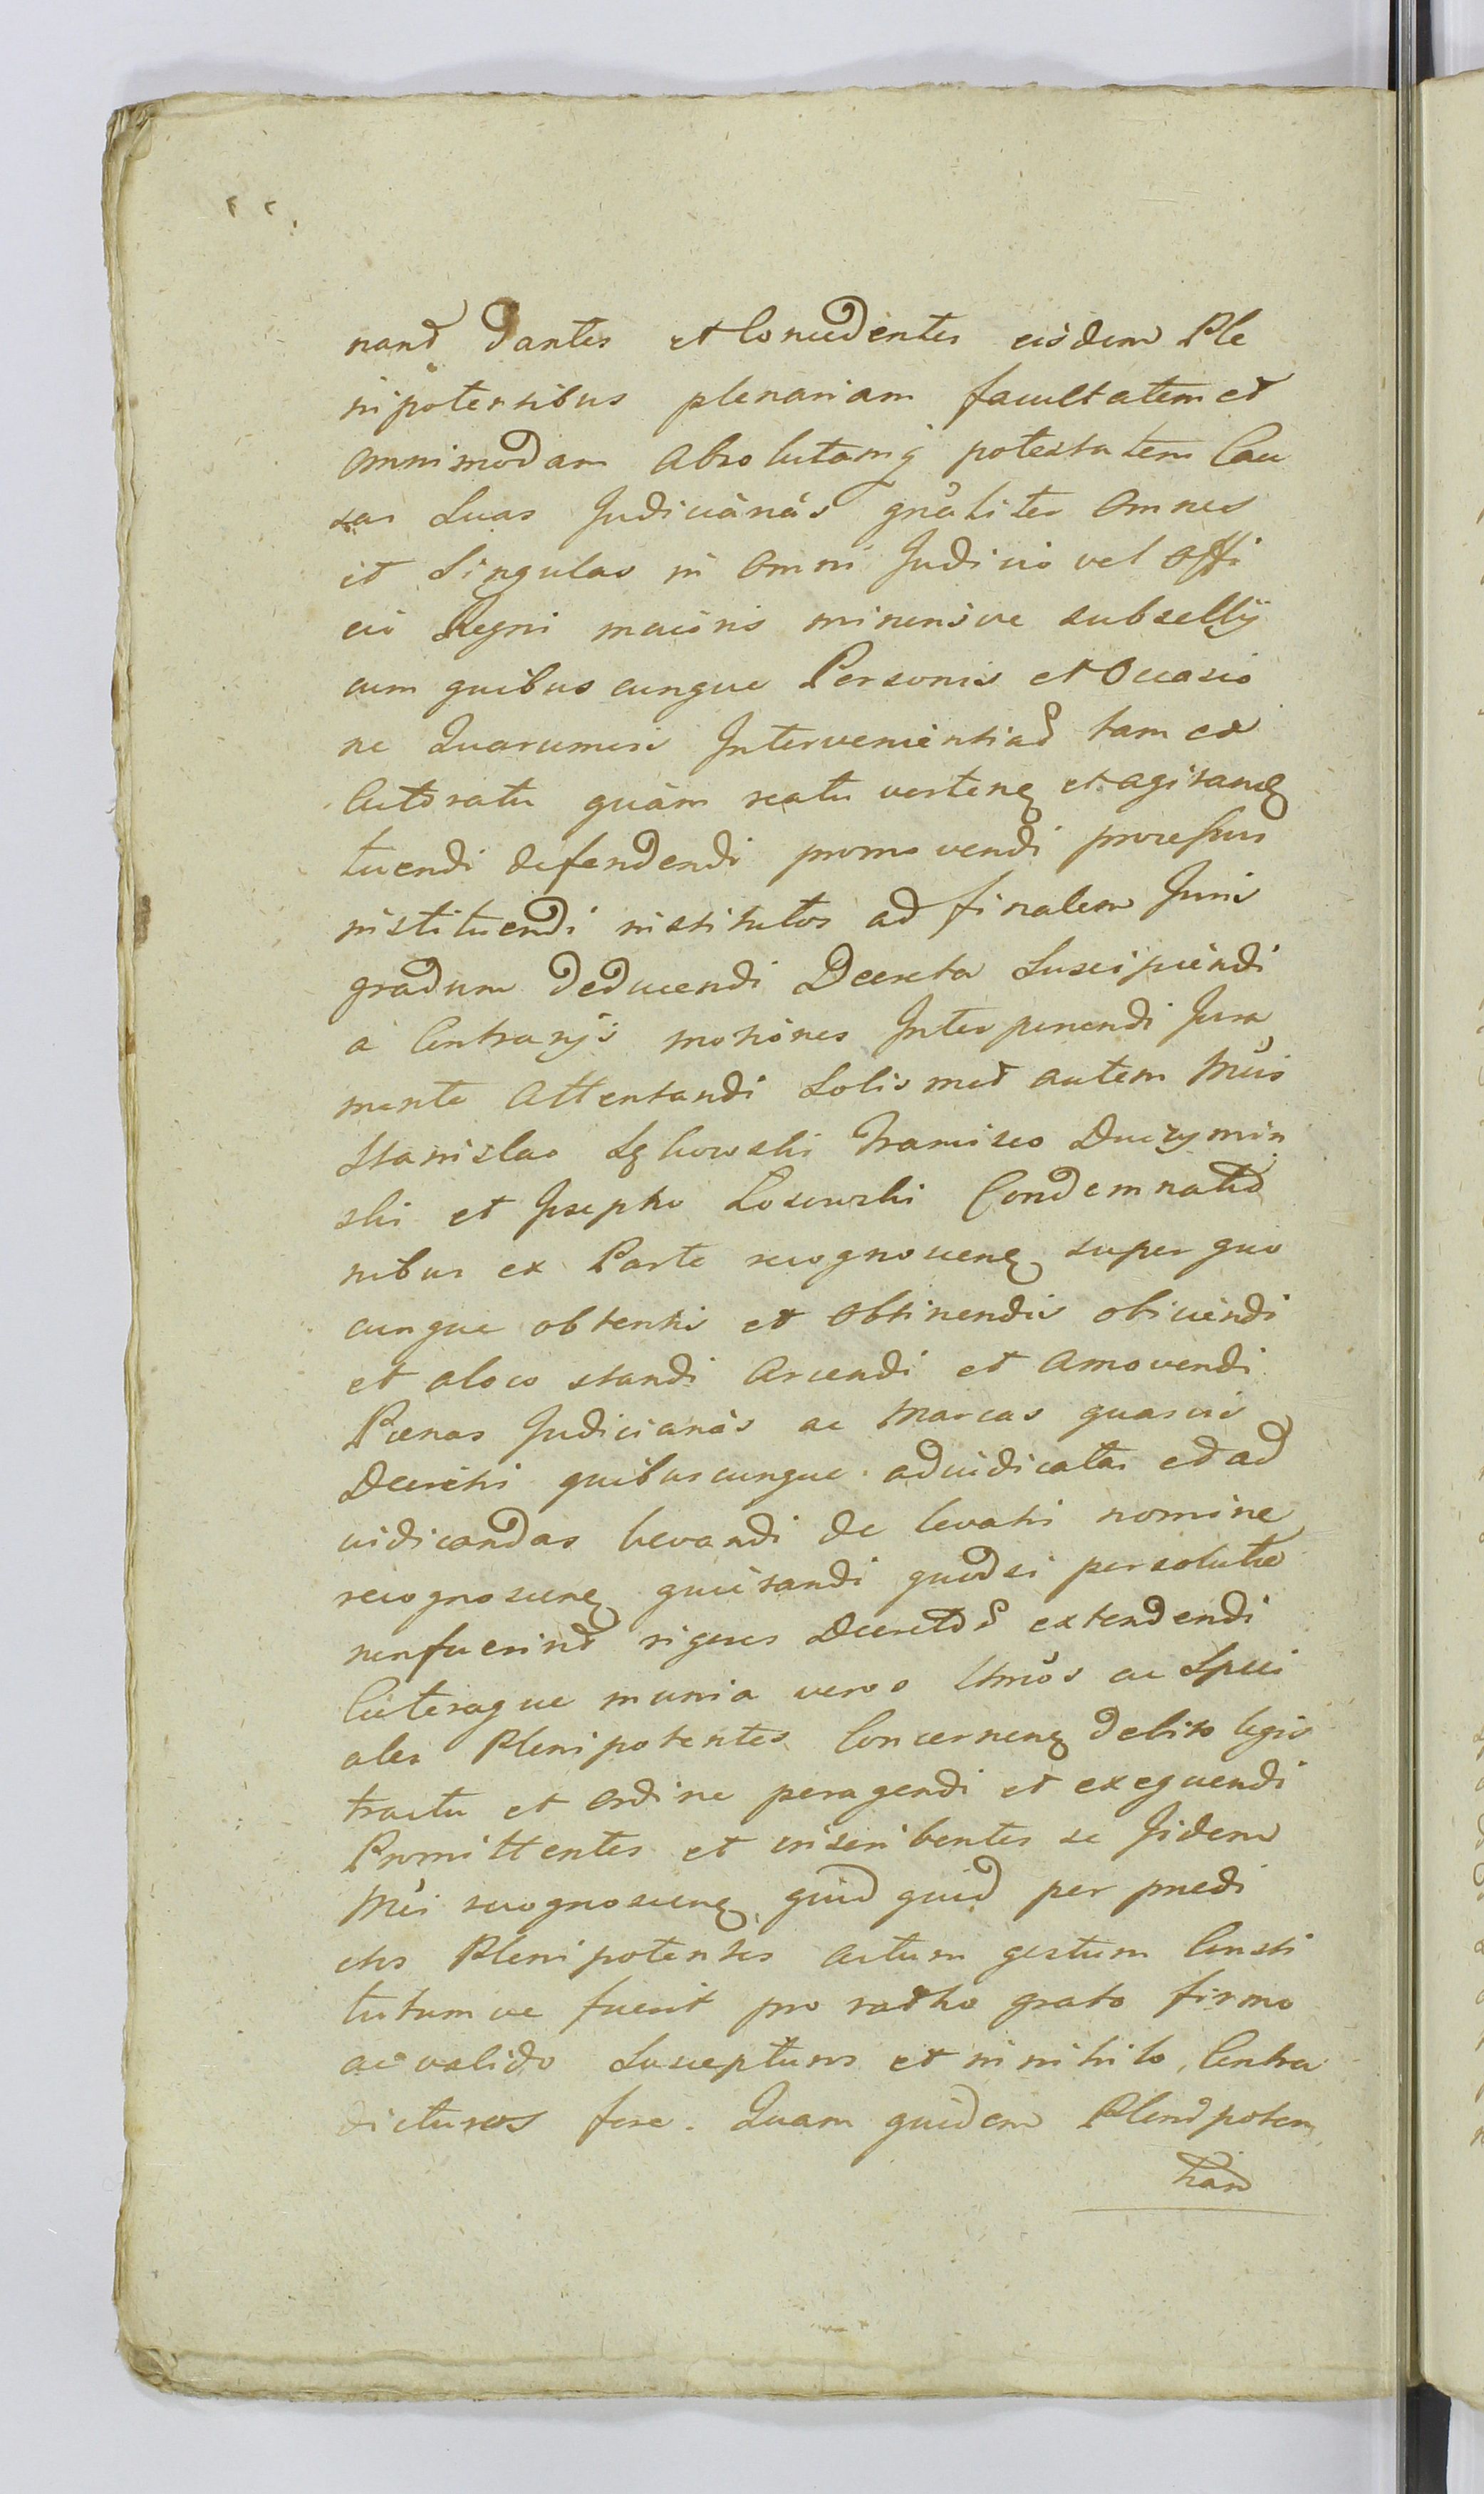 nand Dantes et Concedentes eisdem Ple
nipotentibus plenariam facultatem et
omnimodam Absolutamq potestatem Cau
sas Suas Judiciarias gnaliter omnes
et Singulas in omni Judicio vel offi
cio Regni maioris minorisve subsellij
cum quibuscunque Personis et Occasio
ne Quarumvis Interveniential tam ex
Actoratu quam reatu verten et agitan
tuendi defendendi promovendi processus
instituendi institutos ad finalem Juris
gradum Deducendi Decreta Suscipiendi
a Contrarys motiones Interponendi Jura
menta Attentandi Solis met autem Mcis
Stanislao Francisco Duczymin
ski et Josepho Losewski Condemnatio
nibus ex Parte recognoscen super quo
cunque obtentis et obtinendis obiciendi
et a loco standi Arcendi et Amovendi
Pœnas Judiciarias ac Marcas quasvis
Decretis quibuscunque adiudicatas et ad
iudicandas levandi de levatis nomine
recognoscen quietandi quod si persolutæ
non fuerint rigores Decretor extendendi
Cæteraque munia veros ltmos ac Speci
ales Plenipotentes Concernen debito legis
tractu et ordine peragendi et exequendi
Promittentes et inscribentes se Iidem
Mci recognoscen quid quid per prædi
ctos Plenipotentes Actum gestum Consti
tutum ve fuerit pro ratho grato firmo
ac valido Suscepturos et in nihilo Contra
dicturos fore. Quam quidem Plenipoten
tiam